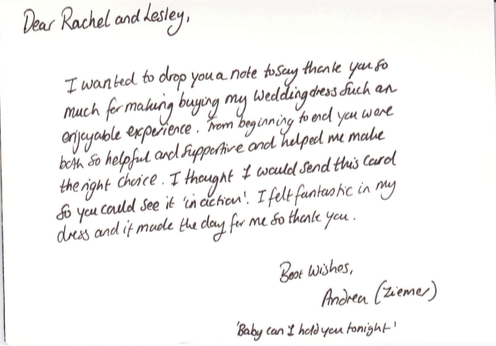 Dear Rachel and Lesley,
I wanted to drop you a note to say thank you so
much for making buying my wedding dress such an
enjoyable experience. From beginning to end you were
both so helpful and supportive and helped me make
the right choice. I thought I would send this card
so you could see it 'in action'. I felt fantastic in my
dress and it made the day for me so thank you.
Best Wishes,
Andrea (Ziemer)
'Baby can I hold you tonight'